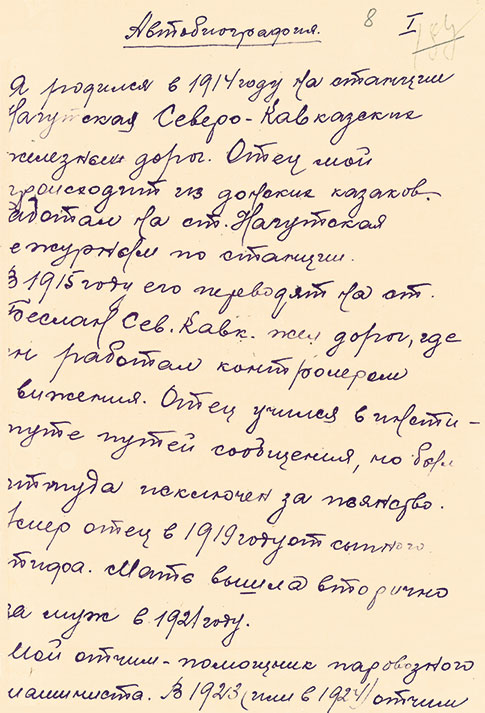 Автобиография. 8 I
Я родился в 1914 году на станции
Нагутская Северо-Кавказских
железных дорог. Отец мой
происходит из донских казаков.
работал на ст. Нагутская
дежурным по станции.
В 1915 году его переводят на ст.
Беслан Сев. Кавк. жел дорог, где
он работал контролером
движения. Отец учился в инсти-
туте путей сообщения, но был
оттуда исключен за пьянство.
Умер отец в 1919 году от сыпного
тифа. Мать вышла вторично
за муж в 1921 году.
Мой отчим - помощник паровозного
машиниста. В 1923 (или в 1924) отчим